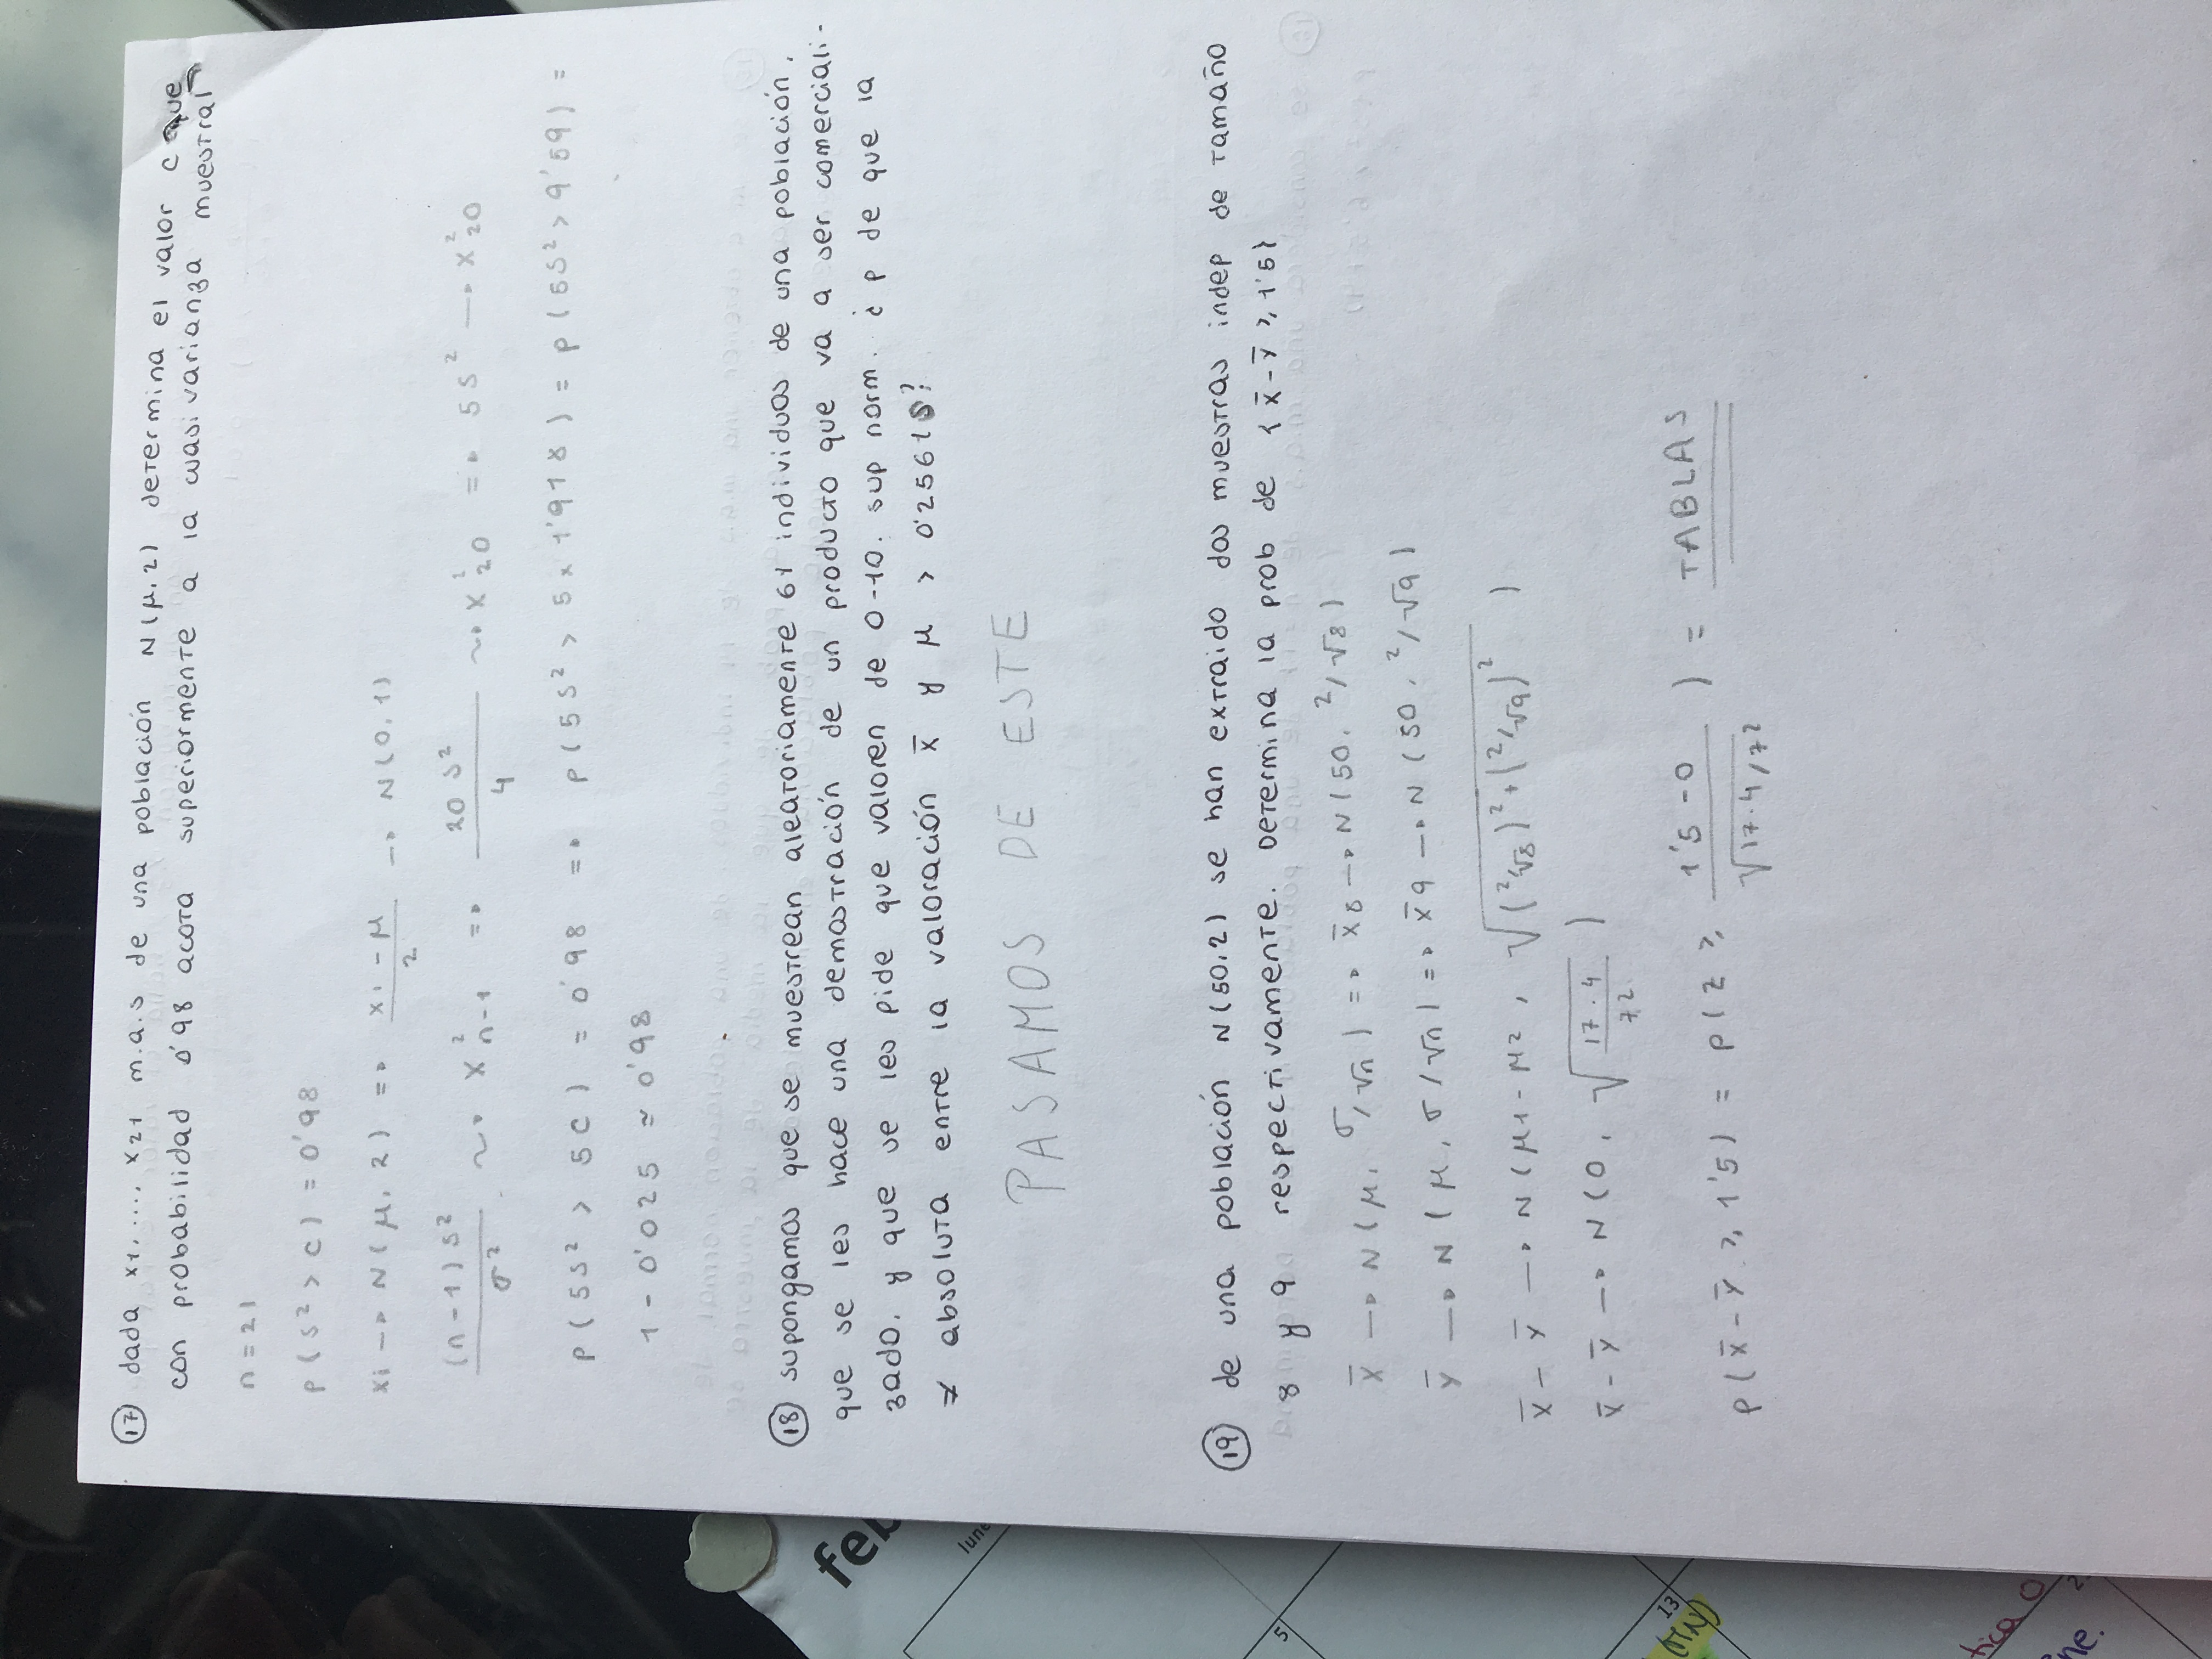 17 dada x1, ..., x21 m.a.s de una población N(μ,2) determina el valor c que
con probabilidad 0'98 acota superiormente a la cuasivarianza muestral
n = 21
P(S² > c) = 0'98
xi → N(μ, 2) => (xi - μ)/2 → N(0,1)
(n-1)S²/σ² ~→ X²n-1 => 20 S²/4 ~→ X²20 => 5S² → X²20
P(5S² > 5C) = 0'98 => P(5S² > 5x1'918) = P(5S² > 9'59) =
1 - 0'025 ≈ 0'98
18 supongamos que se muestrean aleatoriamente 61 individuos de una población,
que se les hace una demostración de un producto que va a ser comerciali-
zado, y que se les pide que valoren de 0-10. sup norm. ¿ P de que la
≠ absoluta entre la valoración x̄ y μ > 0'2561S?
PASAMOS DE ESTE
19 de una población N(50,2) se han extraido dos muestras indep de tamaño
8 y 9 respectivamente. Determina la prob de {x̄-ȳ ≥ 1'5}
x̄ → N(μ, σ/√n) => x̄8 → N(50, 2/√8)
ȳ → N(μ, σ/√n) => x̄9 → N(50, 2/√9)
x̄ - ȳ → N(μ1-μ2, √((2/√8)²+(2/√9)²))
x̄ - ȳ → N(0, √(17·4/72))
P(x̄-ȳ ≥ 1'5) = P(Z ≥ (1'5-0)/√(17·4/72)) = TABLAS
feb
lune
5
13
tica 0
2
ne.